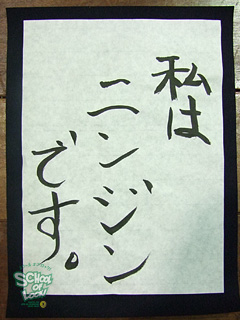 私は
ニンジン
です。
SCHOOL
OF
LOCK!